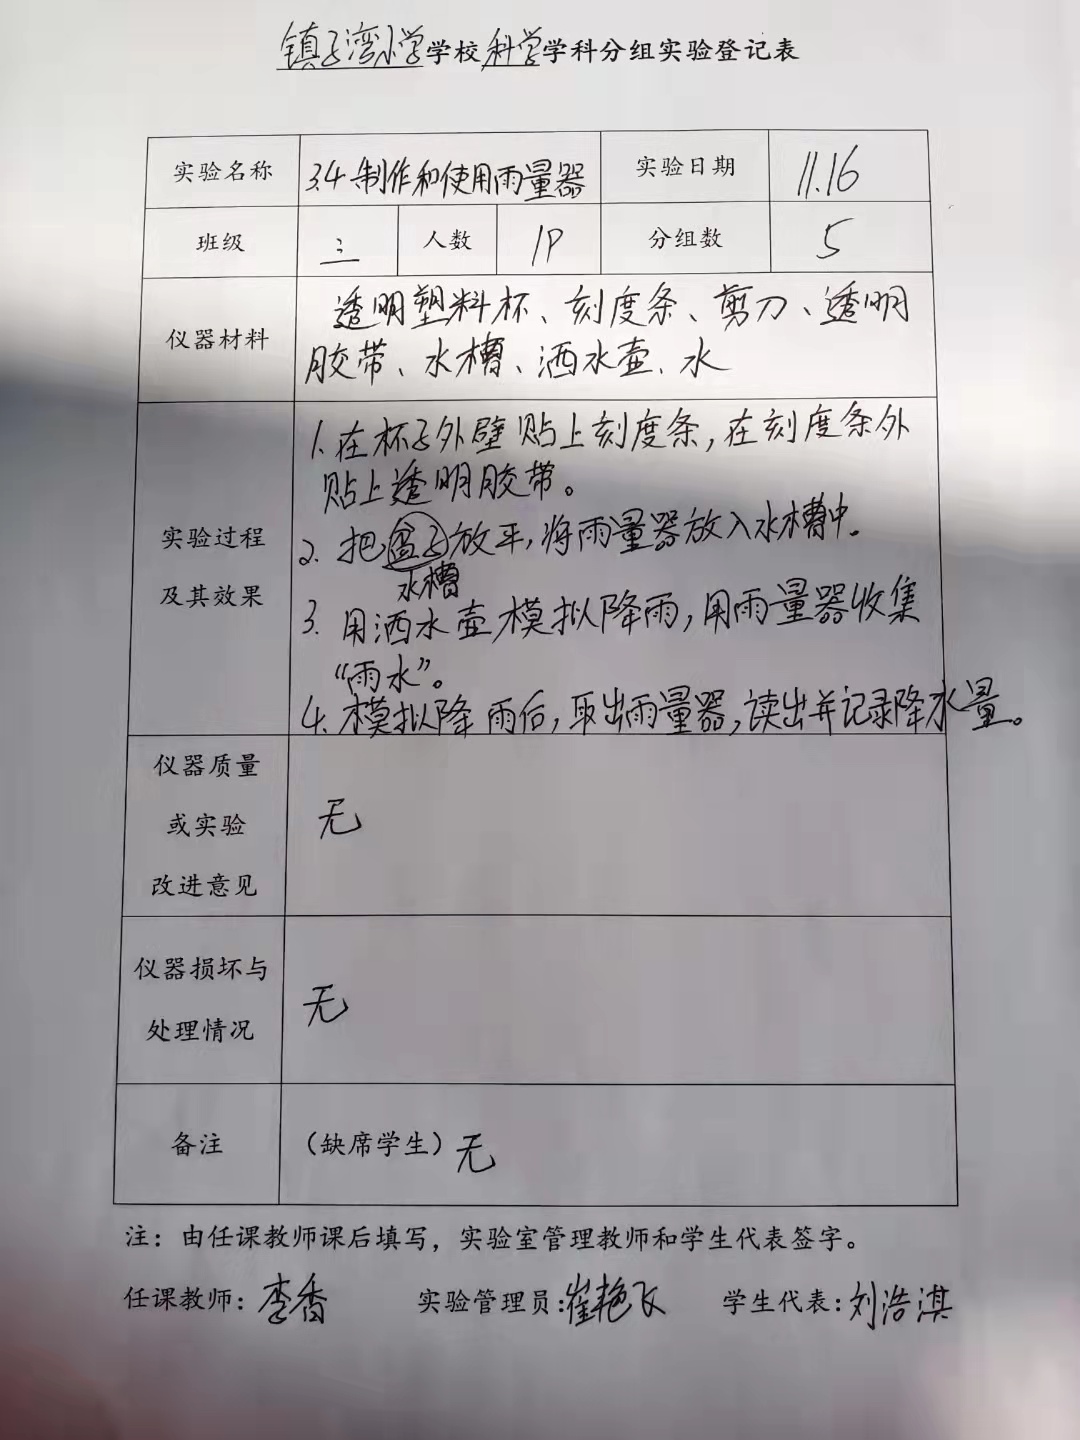 镇子湾小学学校科学学科分组实验登记表
实验名称 3.4 制作和使用雨量器 实验日期 11.16
班级 三 人数 19 分组数 5
仪器材料
透明塑料杯、刻度条、剪刀、透明
胶带、水槽、洒水壶、水
实验过程
及其效果
1.在杯子外壁贴上刻度条,在刻度条外
贴上透明胶带。
2.把盒子放平,将雨量器放入水槽中。
水槽
3.用洒水壶模拟降雨,用雨量器收集
“雨水”。
4.模拟降雨后,取出雨量器,读出并记录降水量。
仪器质量
或实验
改进意见
无
仪器损坏与
处理情况
无
备注 (缺席学生) 无
注:由任课教师课后填写,实验室管理教师和学生代表签字。
任课教师:李香 实验管理员:崔艳飞 学生代表:刘浩淇